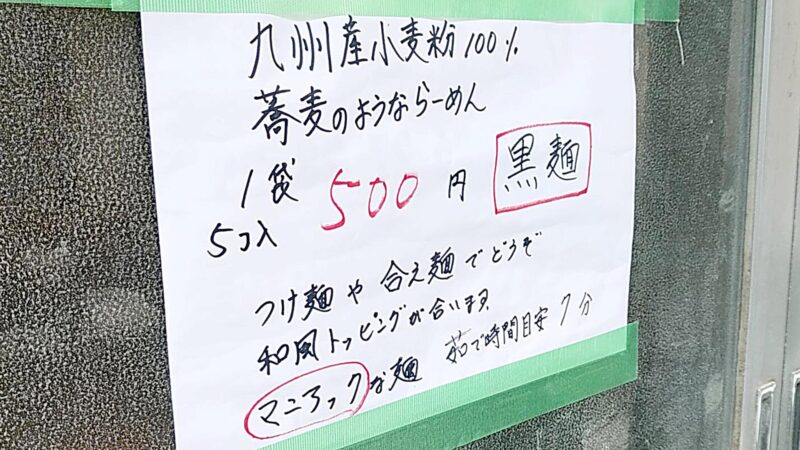 九州産小麦粉100%
蕎麦のようならーめん
1袋 500円 黒麺
5コ入
つけ麺や合え麺でどうぞ
和風トッピングが合います
マニアックな麺 茹で時間目安7分